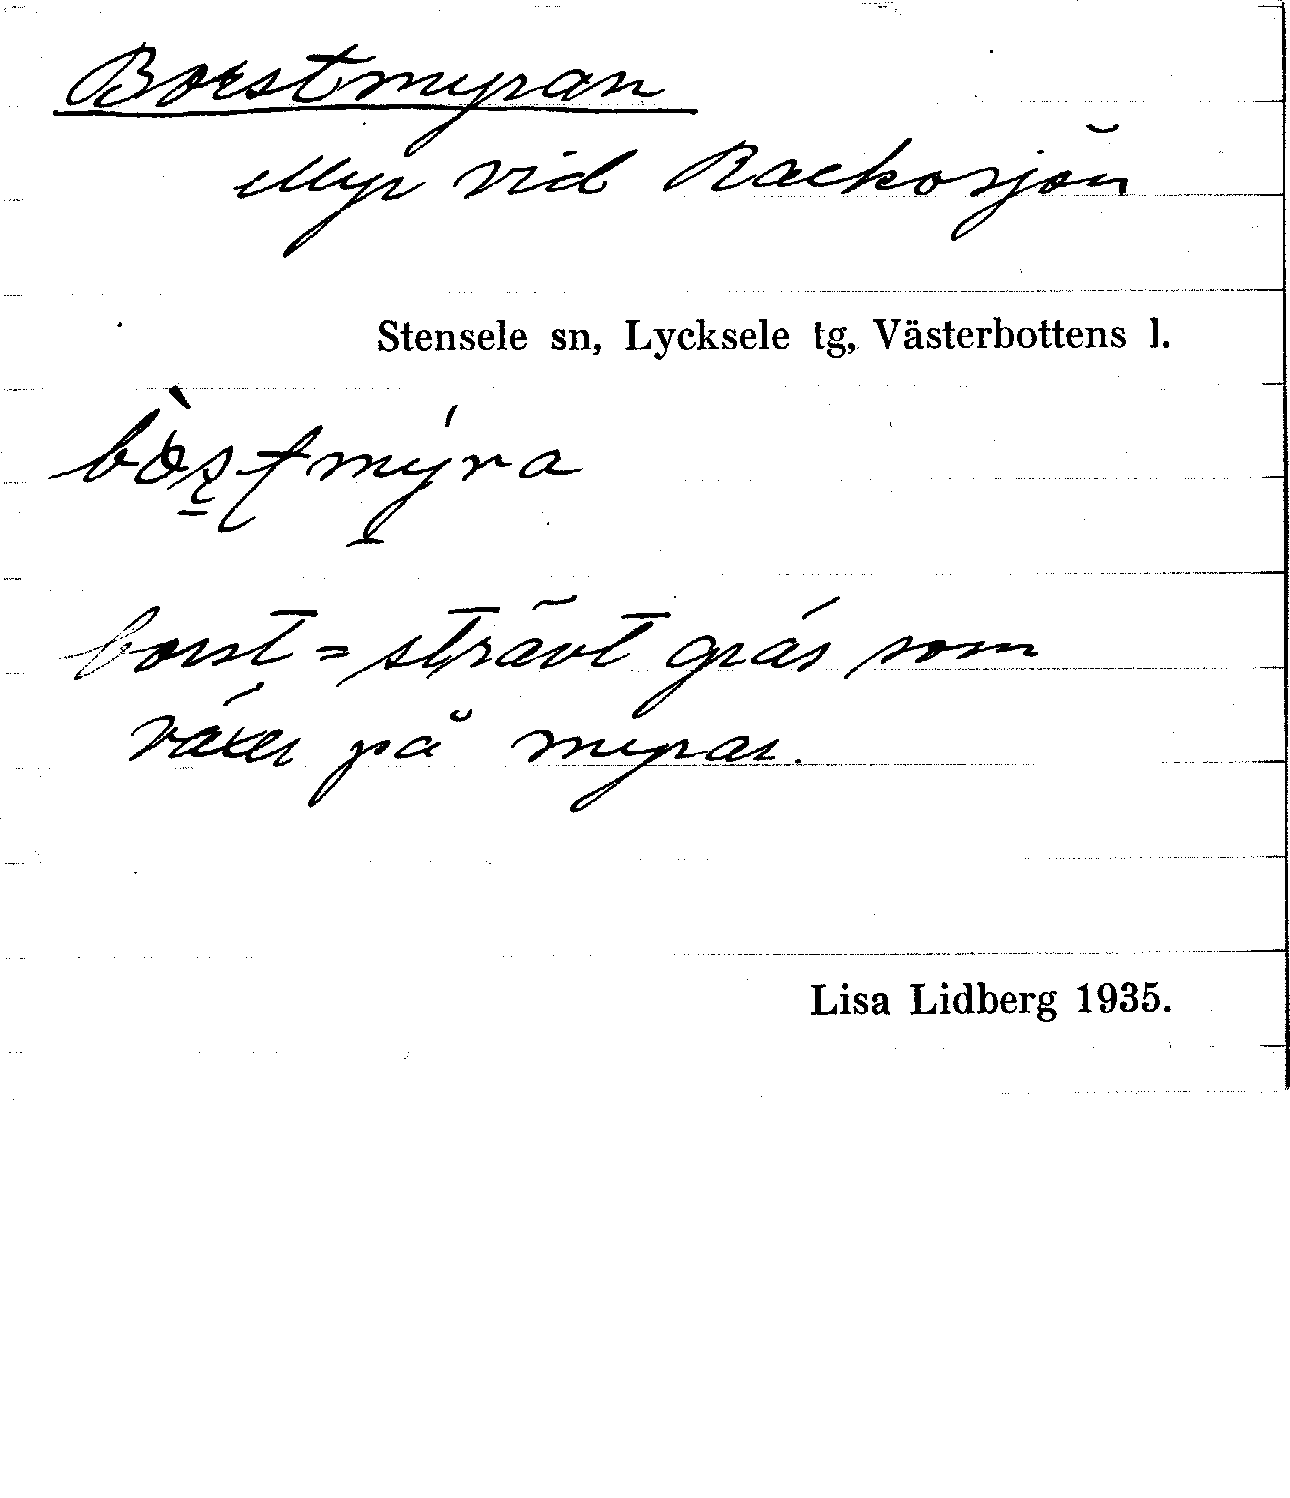 Borstmyran
Myr vid Rackosjön
Stensele sn, Lycksele tg, Västerbottens l.
borst = strävt gräs som
växer på myrar.
Lisa Lidberg 1935.